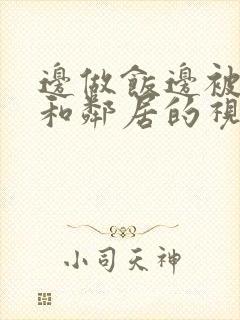 邊做飯邊被
和鄰居的視
小司天神